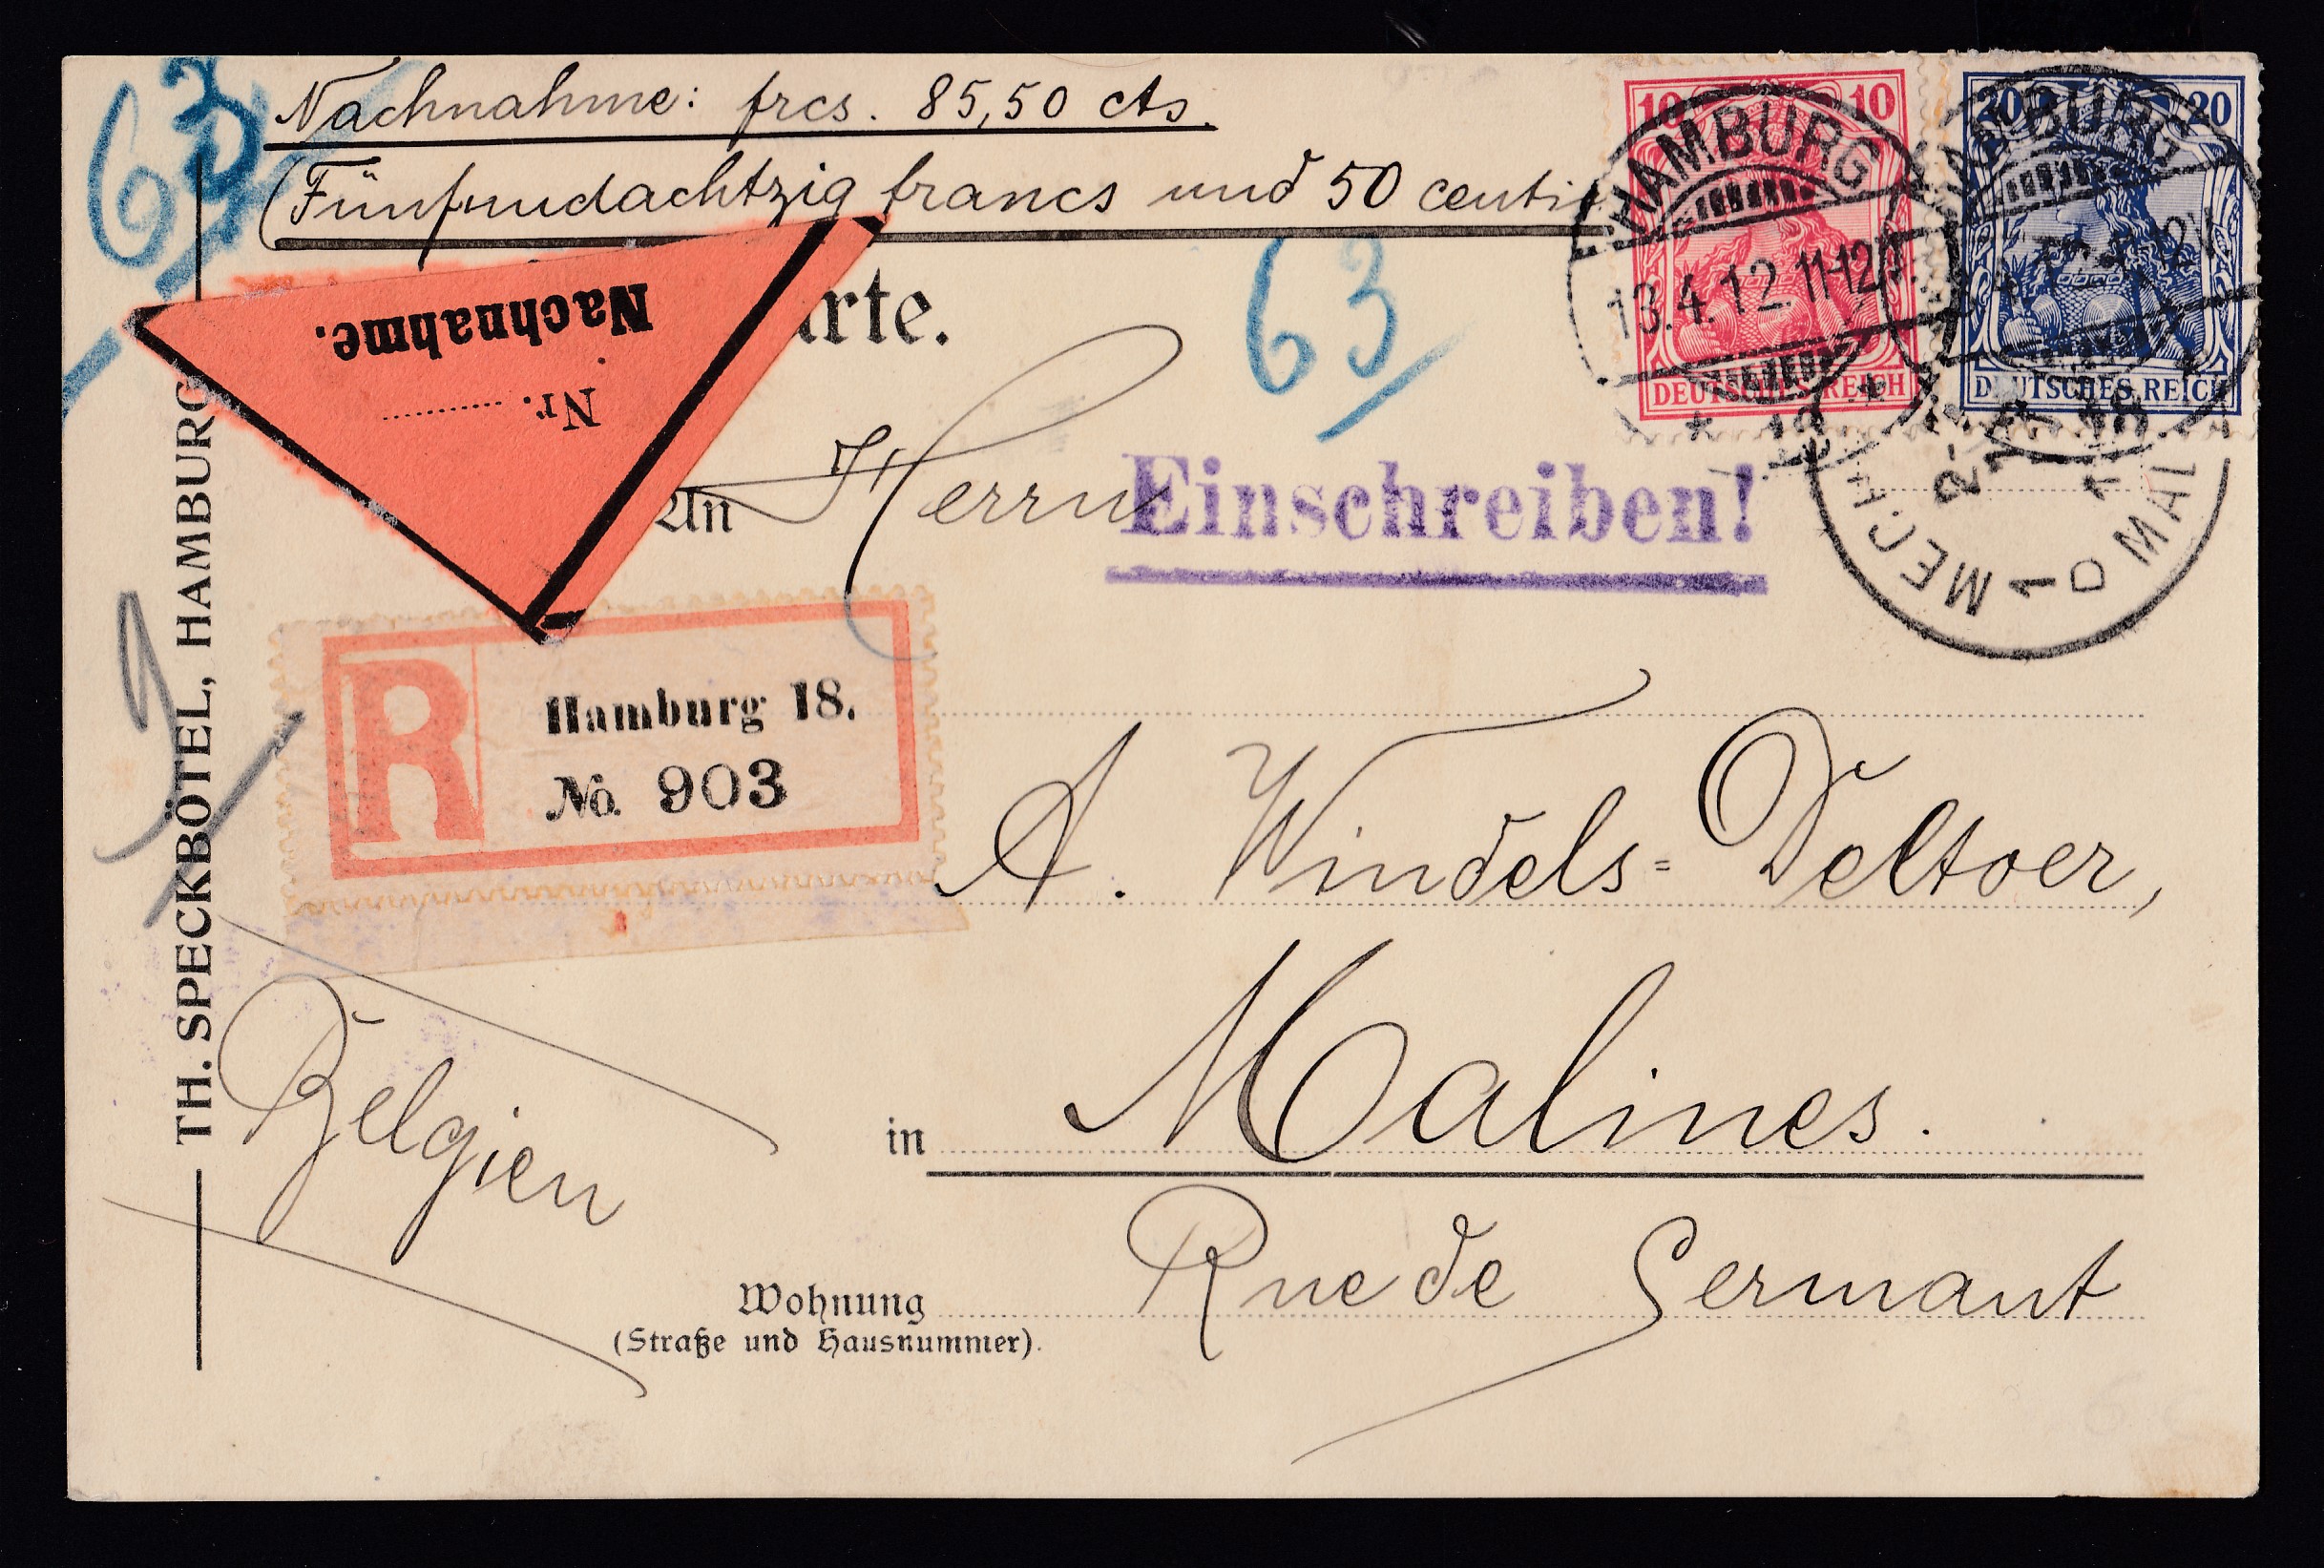 Nachnahme: frcs. 85,50 cts.
(Fünfundachtzig francs und 50 centi
63
63
Nachnahme.
Nr.
arte.
10 10
DEUTSCHES REICH
20 20
DEUTSCHES REICH
HAMBURG
13.4.12.11-12V.
* 18 *
HAMBURG
MECH
MAL
An Herrn
Einschreiben!
R
Hamburg 18.
No. 903
A. Windels=Deltoer,
in Malines.
Belgien
Wohnung Rue de Germant
(Straße und Hausnummer).
TH. SPECKBÖTEL, HAMBURG